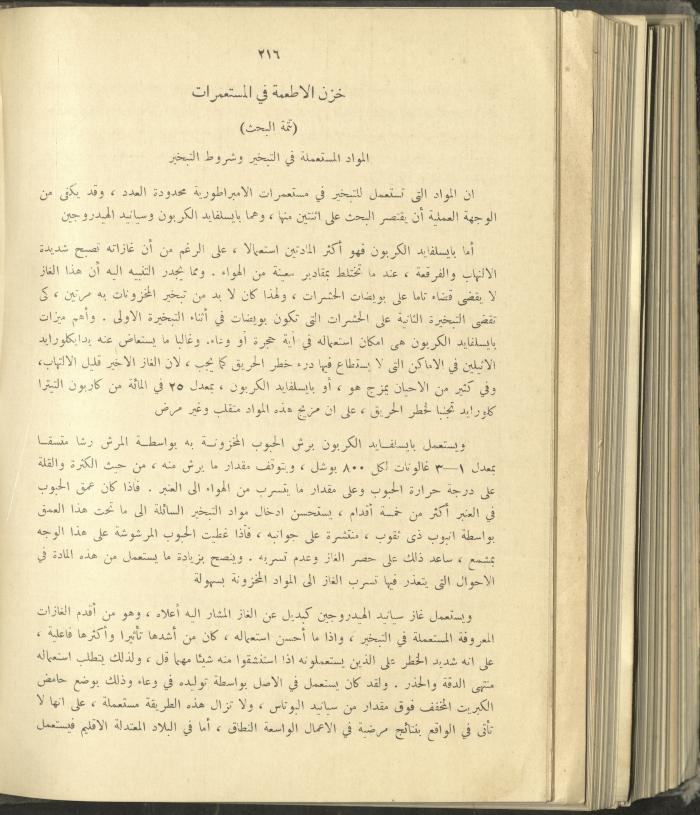 ٢١٦
خزن الاطعمة في المستعمرات
(تتمة البحث)
المواد المستعملة في التبخير وشروط التبخير
ان المواد التي تستعمل للتبخير في مستعمرات الامبراطورية محدودة العدد ، وقد يكفى من
الوجهة العملية أن يقتصر البحث على اثنتين منها ، وهما بايسلفايد الكربون وسيانيد الهيدروجين
أما بايسلفايد الكربون فهو أكثر المادتين استعمالا ، على الرغم من أن غازاته تصبح شديدة
الالتهاب والفرقعة ، عند ما تختلط بمقادير معينة من الهواء . ومما يجدر التنبيه اليه أن هذا الغاز
لا يقضى قضاء تاما على بويضات الحشرات ، ولهذا كان لا بد من تبخير المخزونات به مرتين ، كى
تقضى التبخيرة الثانية على الحشرات التى تكون بويضات في أثناء التبخيرة الاولى . وأهم ميزات
بايسلفايد الكربون هى امكان استعماله في أية حجرة أو وعاء. وغالبا ما يستعاض عنه بدايكلورايد
الاثيلين في الاماكن التى لا يستطاع فيها درء خطر الحريق كما يجب ، لان الغاز الاخير قليل الالتهاب،
وفي كثير من الاحيان يمزج هو ، أو بايسلفايد الكربون ، بمعدل ٢٥ في المائة من كاربون التيترا
كلورايد تجنبا لخطر الحريق ، على ان مزيج هذه المواد متقلب وغير مرض
ويستعمل بايسلفايد الكربون برش الحبوب المخزونة به بواسطة المرش رشا متسقا
بمعدل ١—٣ غالونات لكل ٨٠٠ بوشل ، ويتوقف مقدار ما يرش منه ، من حيث الكثرة والقلة
على درجة حرارة الحبوب وعلى مقدار ما يتسرب من الهواء الى العنبر . فاذا كان عمق الحبوب
في العنبر أكثر من خمسة أقدام ، يستحسن ادخال مواد التبخير السائلة الى ما تحت هذا العمق
بواسطة انبوب ذى ثقوب ، منتشرة على جوانبه ، فاذا غطيت الحبوب المرشوشة على هذا الوجه
بمشمع ، ساعد ذلك على حصر الغاز وعدم تسربه . وينصح بزيادة ما يستعمل من هذه المادة في
الاحوال التى يتعذر فيها تسرب الغاز الى المواد المخزونة بسهولة
ويستعمل غاز سيانيد الهيدروجين كبديل عن الغاز المشار اليه أعلاه ، وهو من أقدم الغازات
المعروفة المستعملة في التبخير ، واذا ما أحسن استعماله ، كان من أشدها تأثيرا وأكثرها فاعلية ،
على انه شديد الخطر على الذين يستعملونه اذا استنشقوا منه شيئا مهما قل ، ولذلك يتطلب استعماله
منتهى الدقة والحذر . ولقد كان يستعمل في الاصل بواسطة توليده في وعاء وذلك بوضع حامض
الكبريت المخفف فوق مقدار من سيانيد البوتاس ، ولا تزال هذه الطريقة مستعملة ، على انها لا
تأتى في الواقع بنتائج مرضية في الاعمال الواسعة النطاق ، أما في البلاد المعتدلة الاقليم فيستعمل